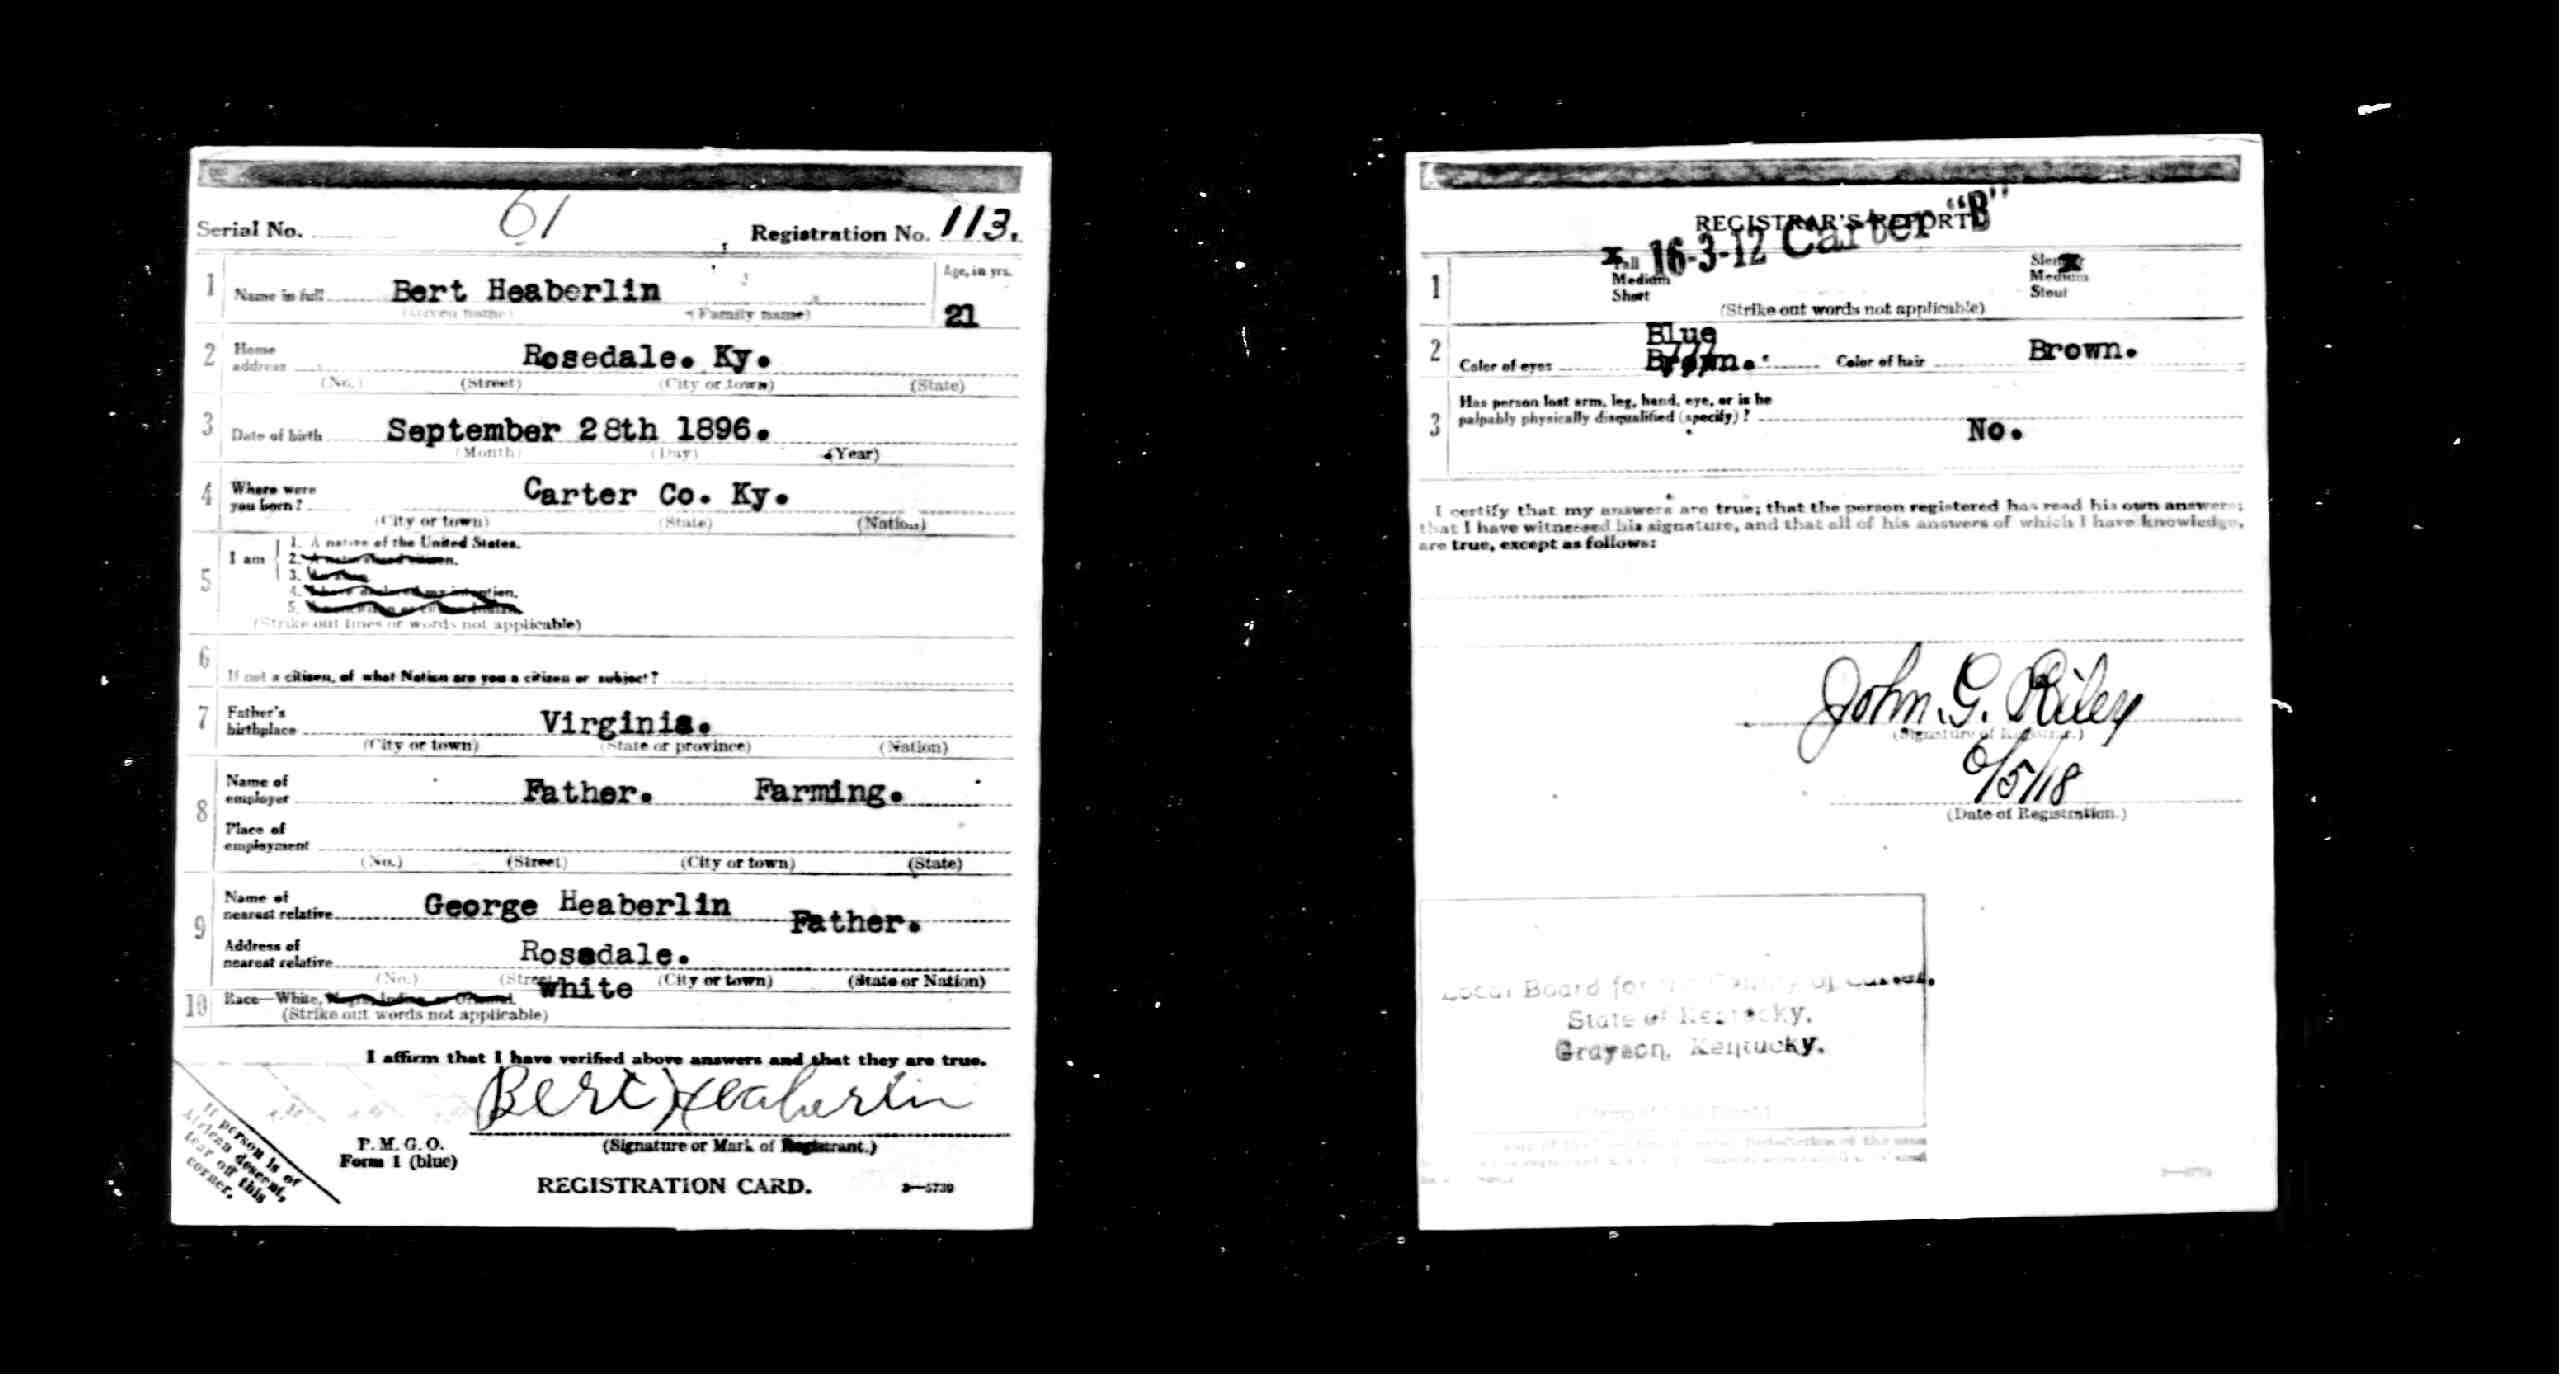 Serial No. 61 Registration No. 113.
1 Name in full Bert Heaberlin Age, in yrs.
(Given name) (Family name) 21
2 Home address Rosedale. Ky.
(No.) (Street) (City or town) (State)
3 Date of birth September 28th 1896.
(Month) (Day) (Year)
4 Where were you born? Carter Co. Ky.
(City or town) (State) (Nation)
5 I am
1. A native of the United States.
2. A naturalized citizen.
3. An alien
4. I have declared my intention.
5.
(Strike out lines or words not applicable)
6 If not a citizen, of what Nation are you a citizen or subject?
7 Father's birthplace Virginia.
(City or town) (State or province) (Nation)
8 Name of employer Father. Farming.
Place of employment
(No.) (Street) (City or town) (State)
9 Name of nearest relative George Heaberlin Father.
Address of nearest relative Rosedale.
(No.) (Street) (City or town) (State or Nation)
10 Race—White, Negro, Indian or Oriental. White
(Strike out words not applicable)
I affirm that I have verified above answers and that they are true.
Bert Heaberlin
(Signature or Mark of Registrant.)
P. M. G. O.
Form 1 (blue)
REGISTRATION CARD. 3—5739
If person is of
African descent,
tear off this
corner.
REGISTRAR'S REPORT
16-3-12 Carter "B"
1 Tall Slender
Medium Medium
Short Stout
(Strike out words not applicable)
Blue
2 Color of eyes Brown. Color of hair Brown.
3 Has person lost arm, leg, hand, eye, or is he
palpably physically disqualified (specify)?
No.
I certify that my answers are true; that the person registered has read his own answers;
that I have witnessed his signature, and that all of his answers of which I have knowledge,
are true, except as follows:
John. G. Riley
(Signature of Registrar.)
6/5/18
(Date of Registration.)
Local Board for the County of Carter,
State of Kentucky.
Grayson, Kentucky.